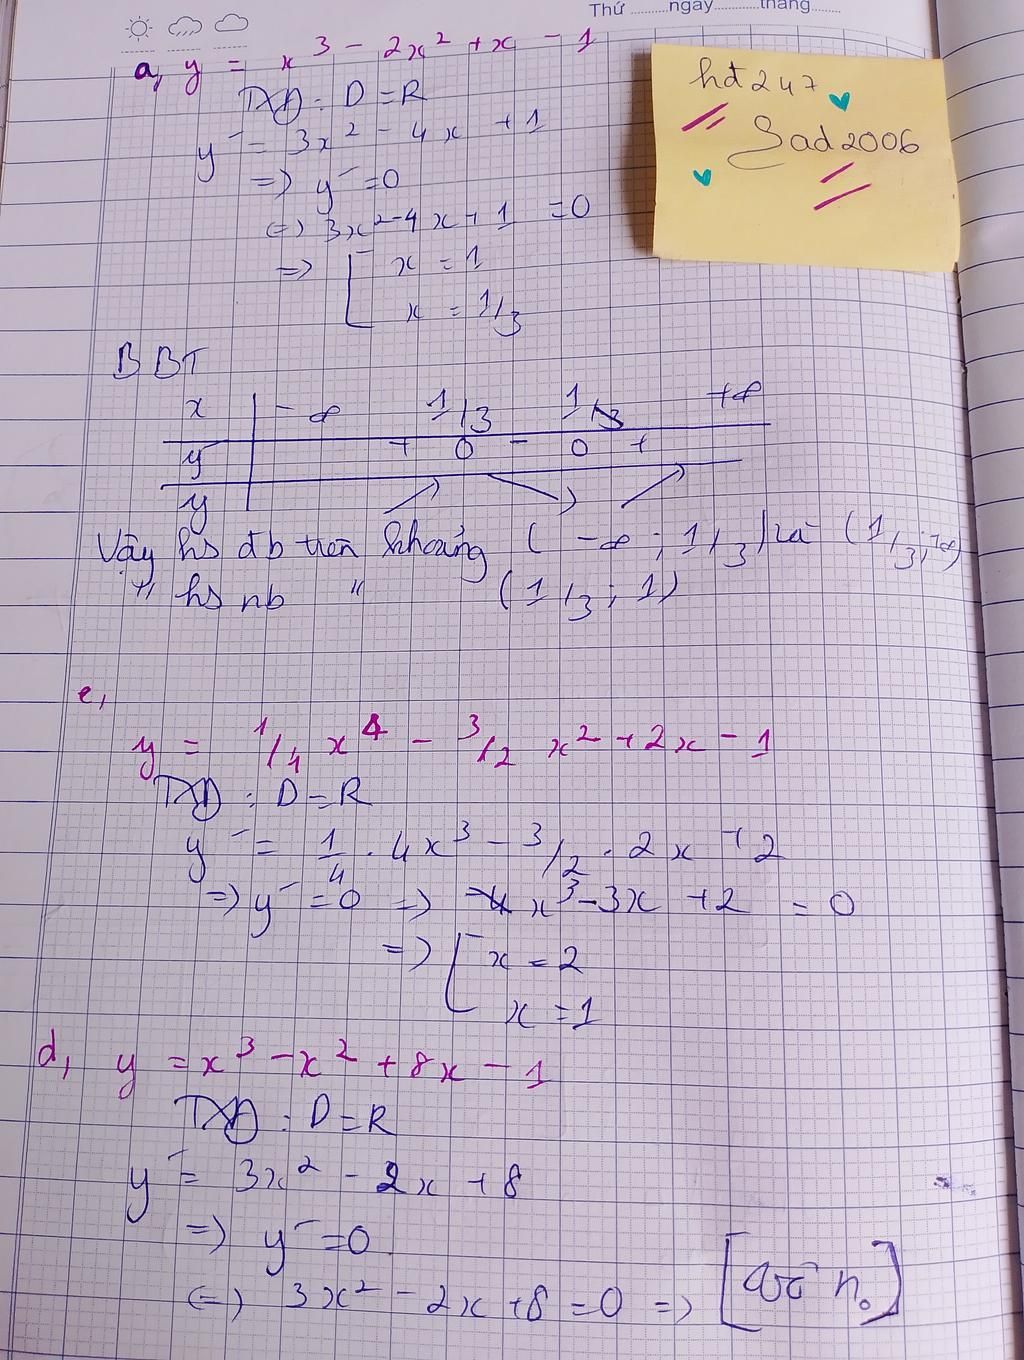 Thứ ..........ngày............tháng............
a, y = x³ - 2x² + x - 1
hđ247
Sad2006
TXĐ : D = R
y' = 3x² - 4x + 1
=> y' = 0
<=> 3x² - 4x + 1 = 0
=> [ x = 1
x = 1/3
BBT
x | -∞ 1/3 1 +∞
y' | + 0 - 0 +
y
Vậy hs đb trên khoảng (-∞ ; 1/3) và (1/3 ; +∞)
" hs nb " (1/3 ; 1)
e,
y = 1/4 x⁴ - 3/2 x² + 2x - 1
TXĐ : D = R
y' = 1/4 . 4x³ - 3/2 . 2x + 2
=> y' = 0 => x³ - 3x + 2 = 0
=> [ x = 2
x = 1
d, y = x³ - x² + 8x - 1
TXĐ : D = R
y' = 3x² - 2x + 8
=> y' = 0
<=> 3x² - 2x + 8 = 0 => [vô n₀]